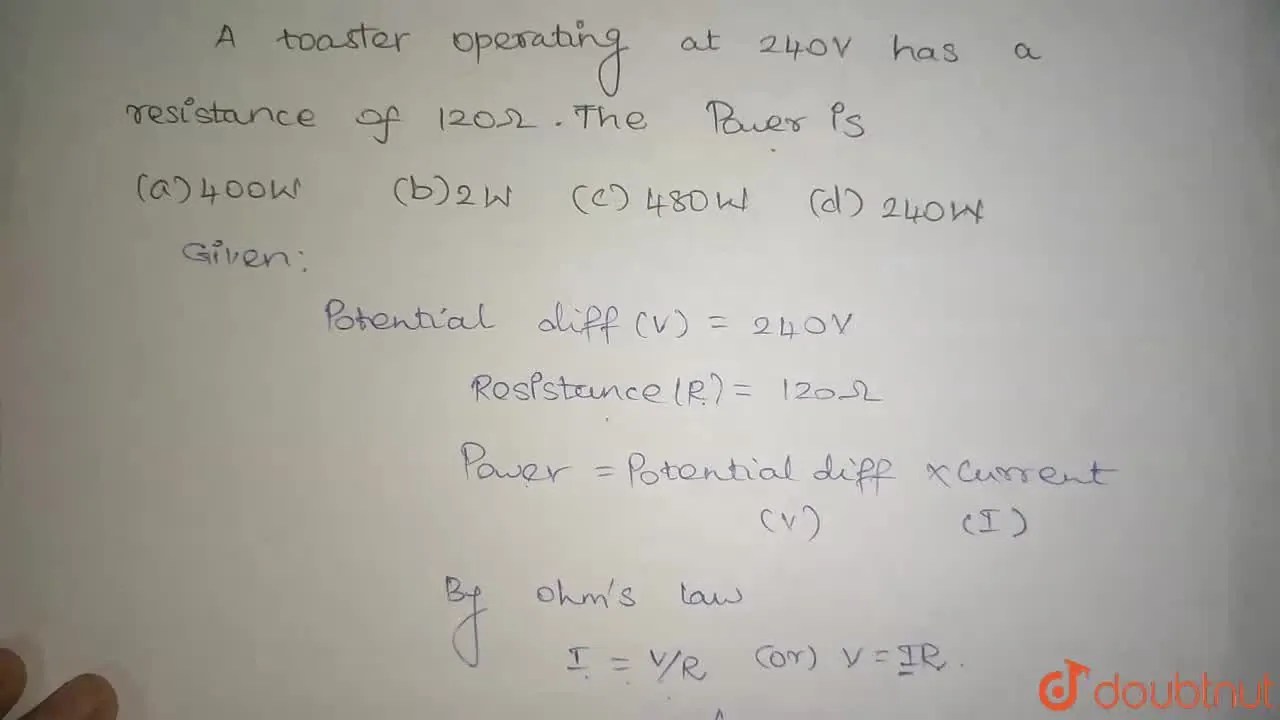 A toaster operating at 240V has a
resistance of 120Ω. The Power is
(a) 400W (b) 2W (c) 480W (d) 240W
Given:
Potential diff (V) = 240V
Resistance (R) = 120Ω
Power = Potential diff × Current
(V) (I)
By ohm's law
I = V/R (or) V = IR.
doubtnut